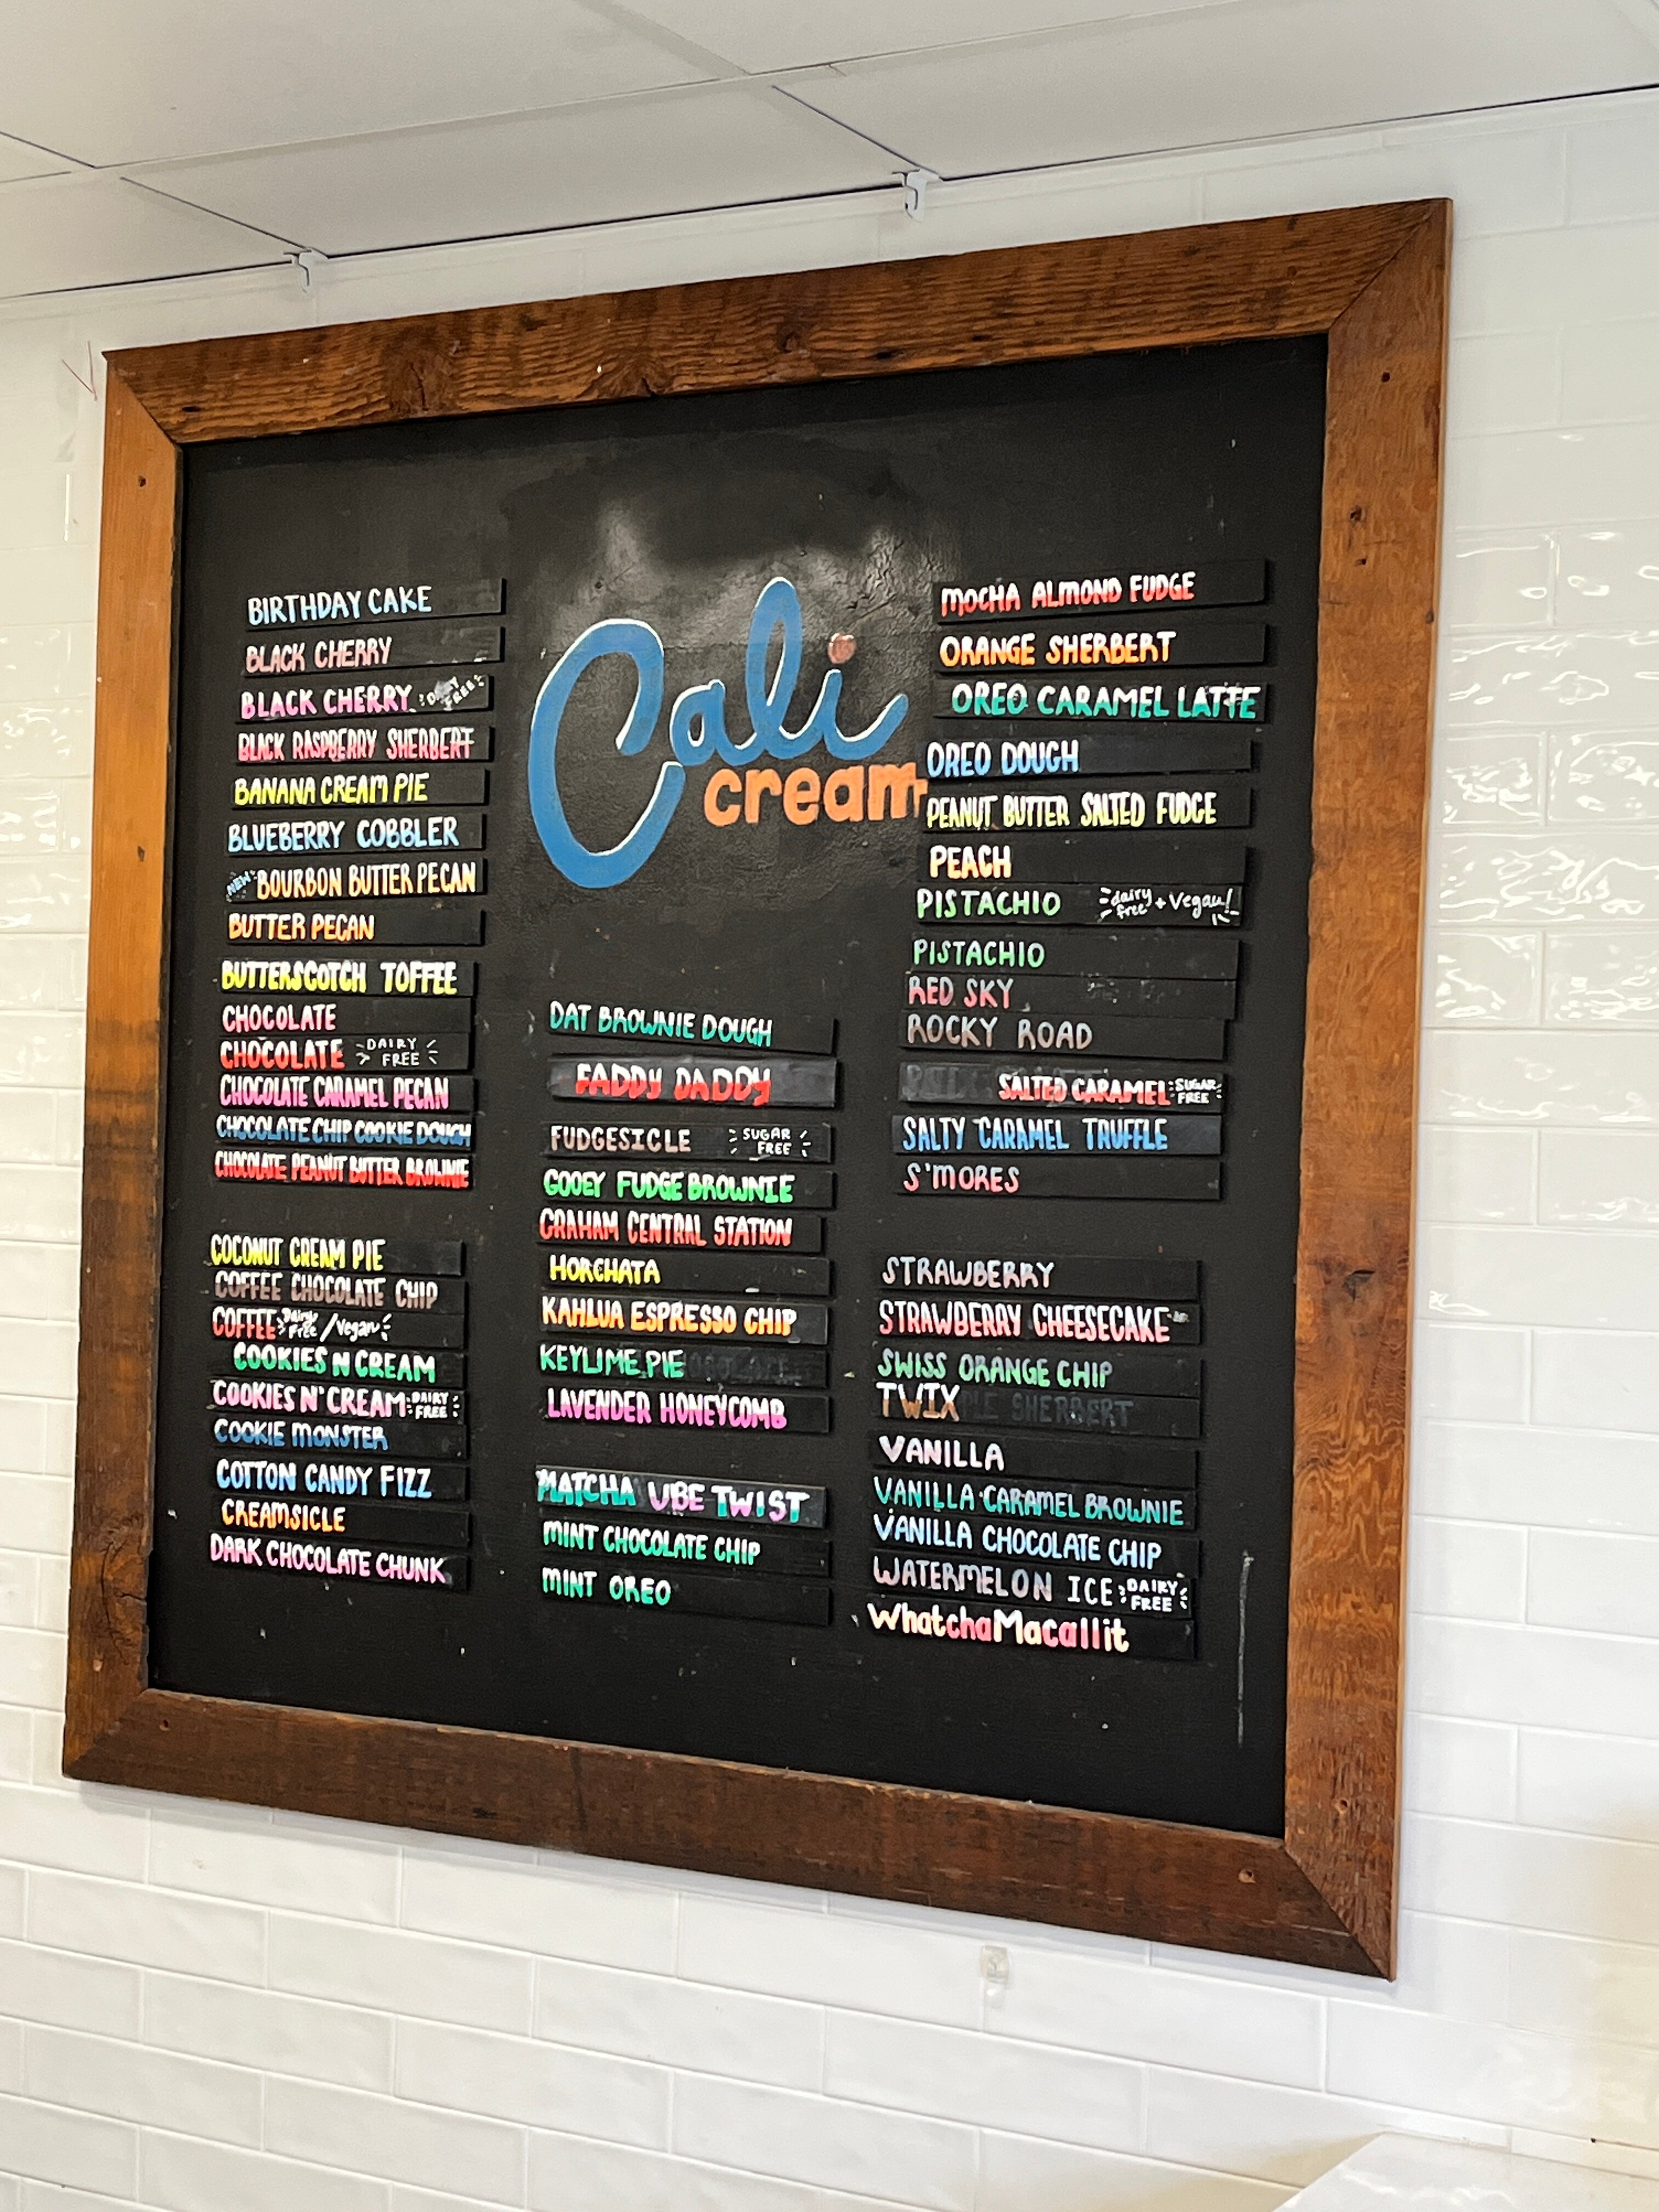 BIRTHDAY CAKE
BLACK CHERRY
BLACK CHERRY DAIRY FREE
BLACK RASPBERRY SHERBERT
BANANA CREAM PIE
BLUEBERRY COBBLER
NEW BOURBON BUTTER PECAN
BUTTER PECAN
BUTTERSCOTCH TOFFEE
CHOCOLATE
CHOCOLATE DAIRY FREE
CHOCOLATE CARAMEL PECAN
CHOCOLATE CHIP COOKIE DOUGH
CHOCOLATE PEANUT BUTTER BROWNIE
COCONUT CREAM PIE
COFFEE CHOCOLATE CHIP
COFFEE Dairy Free / Vegan
COOKIES N CREAM
COOKIES N' CREAM DAIRY FREE
COOKIE MONSTER
COTTON CANDY FIZZ
CREAMSICLE
DARK CHOCOLATE CHUNK
Cali
cream
DAT BROWNIE DOUGH
FADDY DADDY
FUDGESICLE SUGAR FREE
GOOEY FUDGE BROWNIE
GRAHAM CENTRAL STATION
HORCHATA
KAHLUA ESPRESSO CHIP
KEYLIME PIE
LAVENDER HONEYCOMB
MATCHA UBE TWIST
MINT CHOCOLATE CHIP
MINT OREO
MOCHA ALMOND FUDGE
ORANGE SHERBERT
OREO CARAMEL LATTE
OREO DOUGH
PEANUT BUTTER SALTED FUDGE
PEACH
PISTACHIO dairy free + Vegan!
PISTACHIO
RED SKY
ROCKY ROAD
SALTED CARAMEL SUGAR FREE
SALTY CARAMEL TRUFFLE
S'MORES
STRAWBERRY
STRAWBERRY CHEESECAKE
SWISS ORANGE CHIP
TWIX SHERBERT
VANILLA
VANILLA CARAMEL BROWNIE
VANILLA CHOCOLATE CHIP
WATERMELON ICE DAIRY FREE
WhatchaMacallit